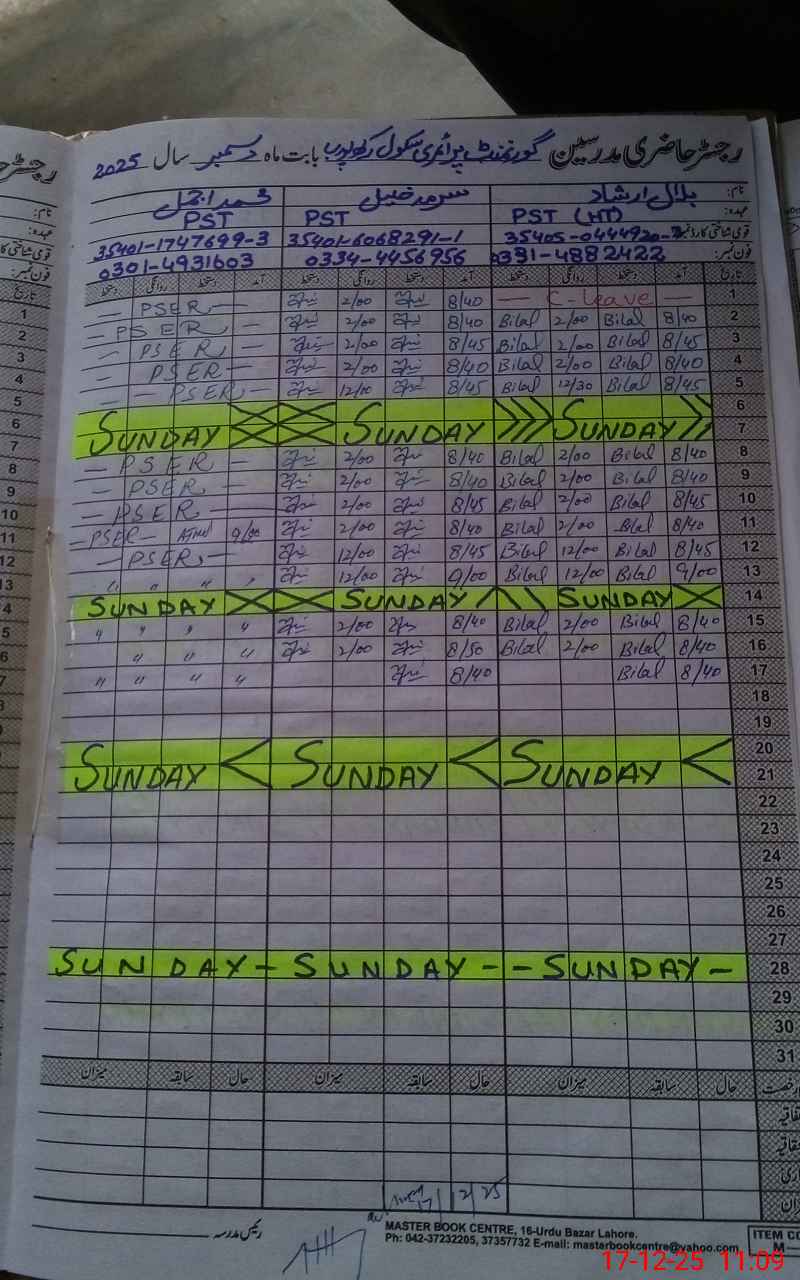 رجسٹر حاضری مدرسین گورنمنٹ پرائمری سکول بابت ماہ دسمبر سال 2025
نام: بلال ارشاد سرمد خلیل محمد اجمل
عہدہ: PST (HT) PST PST
قومی شناختی کارڈ نمبر: 35405-0444920- 35401-6068291-1 35401-1747699-3
فون نمبر: 0331-4882422 0334-4456956 0301-4931603
تاریخ آمد دستخط روانگی دستخط آمد دستخط روانگی دستخط آمد دستخط روانگی دستخط
1 — C-Leave — 8/40 2/00 — PSER —
2 8/40 Bilal 2/00 Bilal 8/40 2/00 — PSER —
3 8/45 Bilal 2/00 Bilal 8/45 2/00 — PSER —
4 8/40 Bilal 2/00 Bilal 8/40 2/00 — PSER —
5 8/45 Bilal 12/30 Bilal 8/45 12/00 — PSER —
6
7 SUNDAY SUNDAY SUNDAY
8 8/40 Bilal 2/00 Bilal 8/40 2/00 — PSER —
9 8/40 Bilal 2/00 Bilal 8/40 2/00 — PSER —
10 8/45 Bilal 2/00 Bilal 8/45 2/00 — PSER —
11 8/40 Bilal 2/00 Bilal 8/40 2/00 9/00 — PSER —
12 8/45 Bilal 12/00 Bilal 8/45 12/00 — PSER —
13 9/00 Bilal 12/00 Bilal 9/00 12/00 " " " "
14 SUNDAY SUNDAY SUNDAY
15 8/40 Bilal 2/00 Bilal 8/40 2/00 " " " "
16 8/40 Bilal 2/00 Bilal 8/50 2/00 " " " "
17 8/40 Bilal 8/40 " " " "
18
19
20
21 SUNDAY SUNDAY SUNDAY
22
23
24
25
26
27
28 SUNDAY - SUNDAY - - SUNDAY -
29
30
31
حال سابقہ میزان حال سابقہ میزان حال سابقہ میزان
17/12/25
رئیس مدرسہ
MASTER BOOK CENTRE, 16-Urdu Bazar Lahore.
Ph: 042-37232205, 37357732 E-mail: masterbookcentre@yahoo.com
ITEM CO
M—
17-12-25 11:09